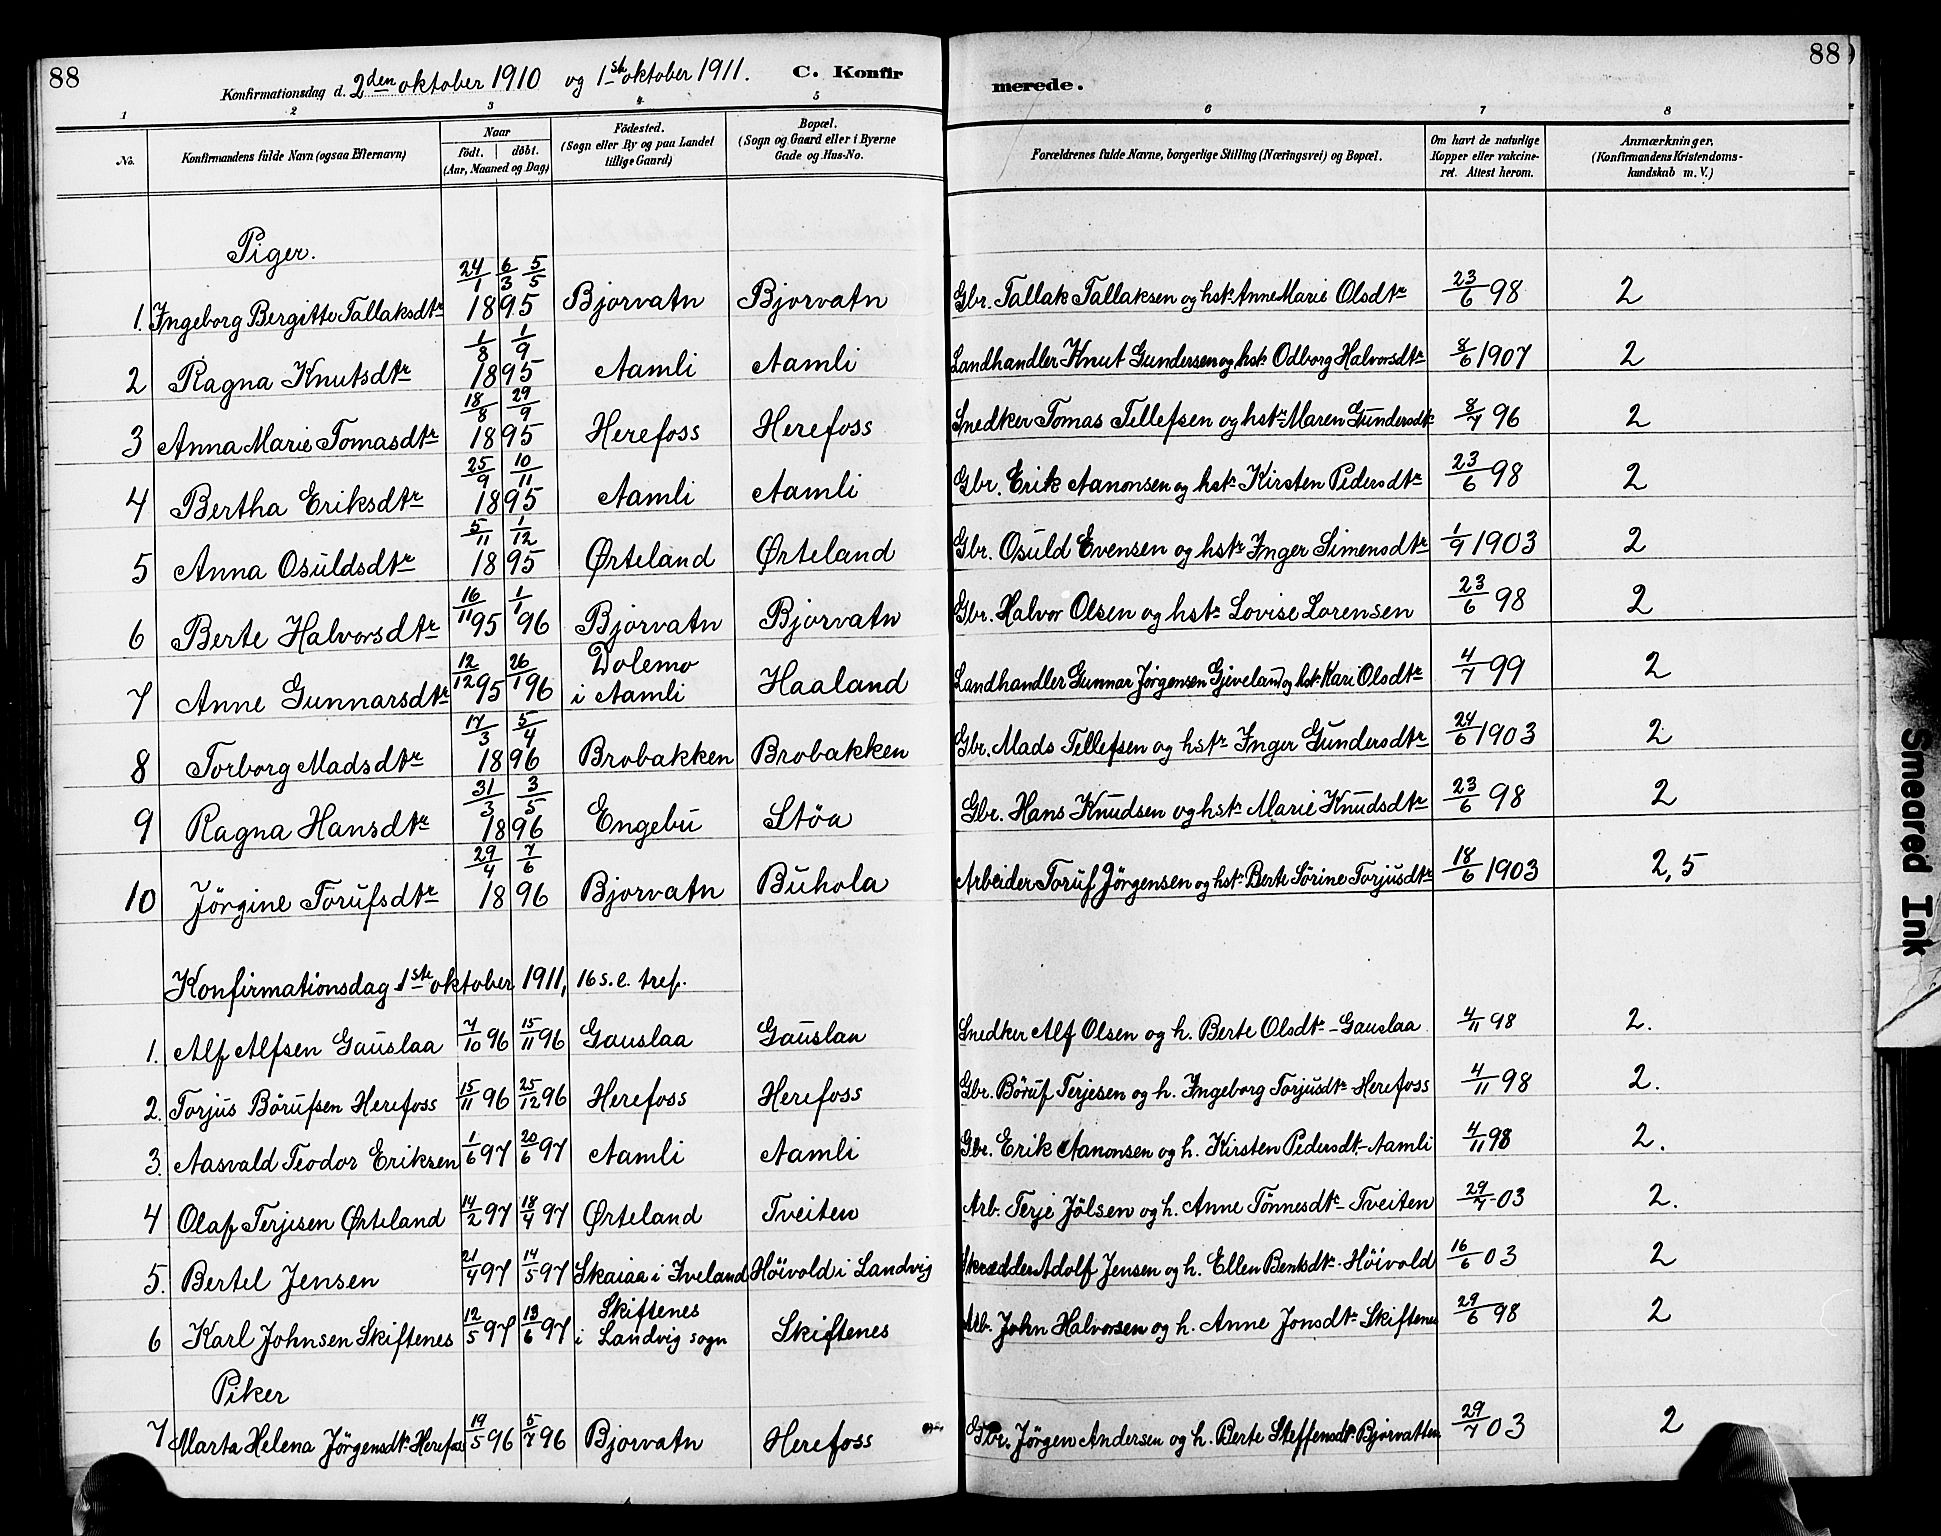 88
Konfirmationsdag d. 2den oktober 1910 og 1ste oktober 1911. C. Konfirmerede. 88
1 2 3 4 5 6 7 8
No. Konfirmandens fulde Navn (ogsaa Efternavn) Naar født. døbt. (Aar, Maaned og Dag) Födested. (Sogn eller By og paa Landet tillige Gaard) Bopæl. (Sogn og Gaard eller i Byerne Gade og Hus-No. Forældrenes fulde Navne, borgerlige Stilling (Næringsvei) og Bopæl. Om havt de naturlige Kopper eller vakcineret. Attest herom. Anmærkninger. (Konfirmandens Kristendomskundskab m. V.)
Piger.
1. Ingeborg Bergitte Tallaksdtr 24/1 6/3 5/5 1895 Bjorvatn Bjorvatn Gbr. Tallak Tallaksen og hstr Anne Marie Olsdtr 23/6 98 2
2 Ragna Knutsdtr 1/8 1/9 1895 Aamli Aamli Landhandler Knut Gundersen og hstr Odborg Halvorsdtr 8/6 1907 2
3 Anna Marie Tomasdtr 18/8 29/9 1895 Herefoss Herefoss Snedker Tomas Tellefsen og hstr Maren Gundersdtr 8/7 96 2
4 Bertha Eriksdtr 25/9 10/11 1895 Aamli Aamli Gbr. Erik Aanonsen og hstr Kirsten Pedersdtr 23/6 98 2
5 Anna Osuldsdtr 5/11 1/12 1895 Ørteland Ørteland Gbr. Osuld Evensen og hstr Inger Simensdtr 1/9 1903 2
6 Berte Halvorsdtr 16/11 95 1/1 96 Bjorvatn Bjorvatn Gbr. Halvor Olsen og hstr Lovise Lorensen 23/6 98 2
7 Anne Gunnarsdtr 12/12 95 26/1 96 Dolemo i Aamli Haaland Landhandler Gunnar Jørgensen Gjeveland og hstr Kari Olsdtr 4/7 99 2
8 Torborg Madsdtr 17/3 5/4 1896 Brobakken Brobakken Gbr. Mads Tellefsen og hstr Inger Gundersdtr 24/6 1903 2
9 Ragna Hansdtr 31/3 3/5 1896 Engebu Støa Gbr. Hans Knudsen og hstr Marie Knudsdtr 23/6 98 2
10 Jörgine Torufsdtr 29/4 7/6 1896 Bjorvatn Buhola Arbeider Toruf Jörgensen og hstr Berte Sörine Torjusdtr 18/6 1903 2,5
Konfirmationsdag 1ste oktober 1911, 16 s. e. tref.
1. Alf Alfsen Gauslaa 7/10 96 15/11 96 Gauslaa Gauslaa Snedker Alf Olsen og h. Berte Olsdtr - Gauslaa 4/11 98 2.
2. Torjus Börufsen Herefoss 15/11 96 25/12 96 Herefoss Herefoss Gbr. Böruf Terjesen og h. Ingeborg Torjusdtr - Herefoss 4/11 98 2.
3. Aasvald Teodor Eriksen 1/6 97 20/6 97 Aamli Aamli Gbr. Erik Aanonsen og h. Kirsten Pedersdt - Aamli 4/11 98 2.
4 Olaf Terjesen Ørteland 14/2 97 18/4 97 Ørteland Tveiten Arb. Terje Jölsen og h. Anne Tönnesdtr - Tveiten 29/7 03 2.
5. Bertel Jensen 21/4 97 14/5 97 Skaiaa i Iveland Höivold i Landvig Skrædder Adolf Jensen og h. Ellen Bentsdtr - Höivold 16/6 03 2
6 Karl Johnsen Skiftenes 12/5 97 13/6 97 Skiftenes i Landvig sogn Skiftenes Arb. John Halvorsen og h. Anne Jonsdtr - Skiftenes 29/6 98 2
Piker
7 Marta Helena Jörgensdtr Herefoss 19/5 96 5/7 96 Bjorvatn Herefoss Gbr. Jörgen Andersen og h. Berte Steffensdtr Bjorvatten 29/7 03 2
Smeared Ink